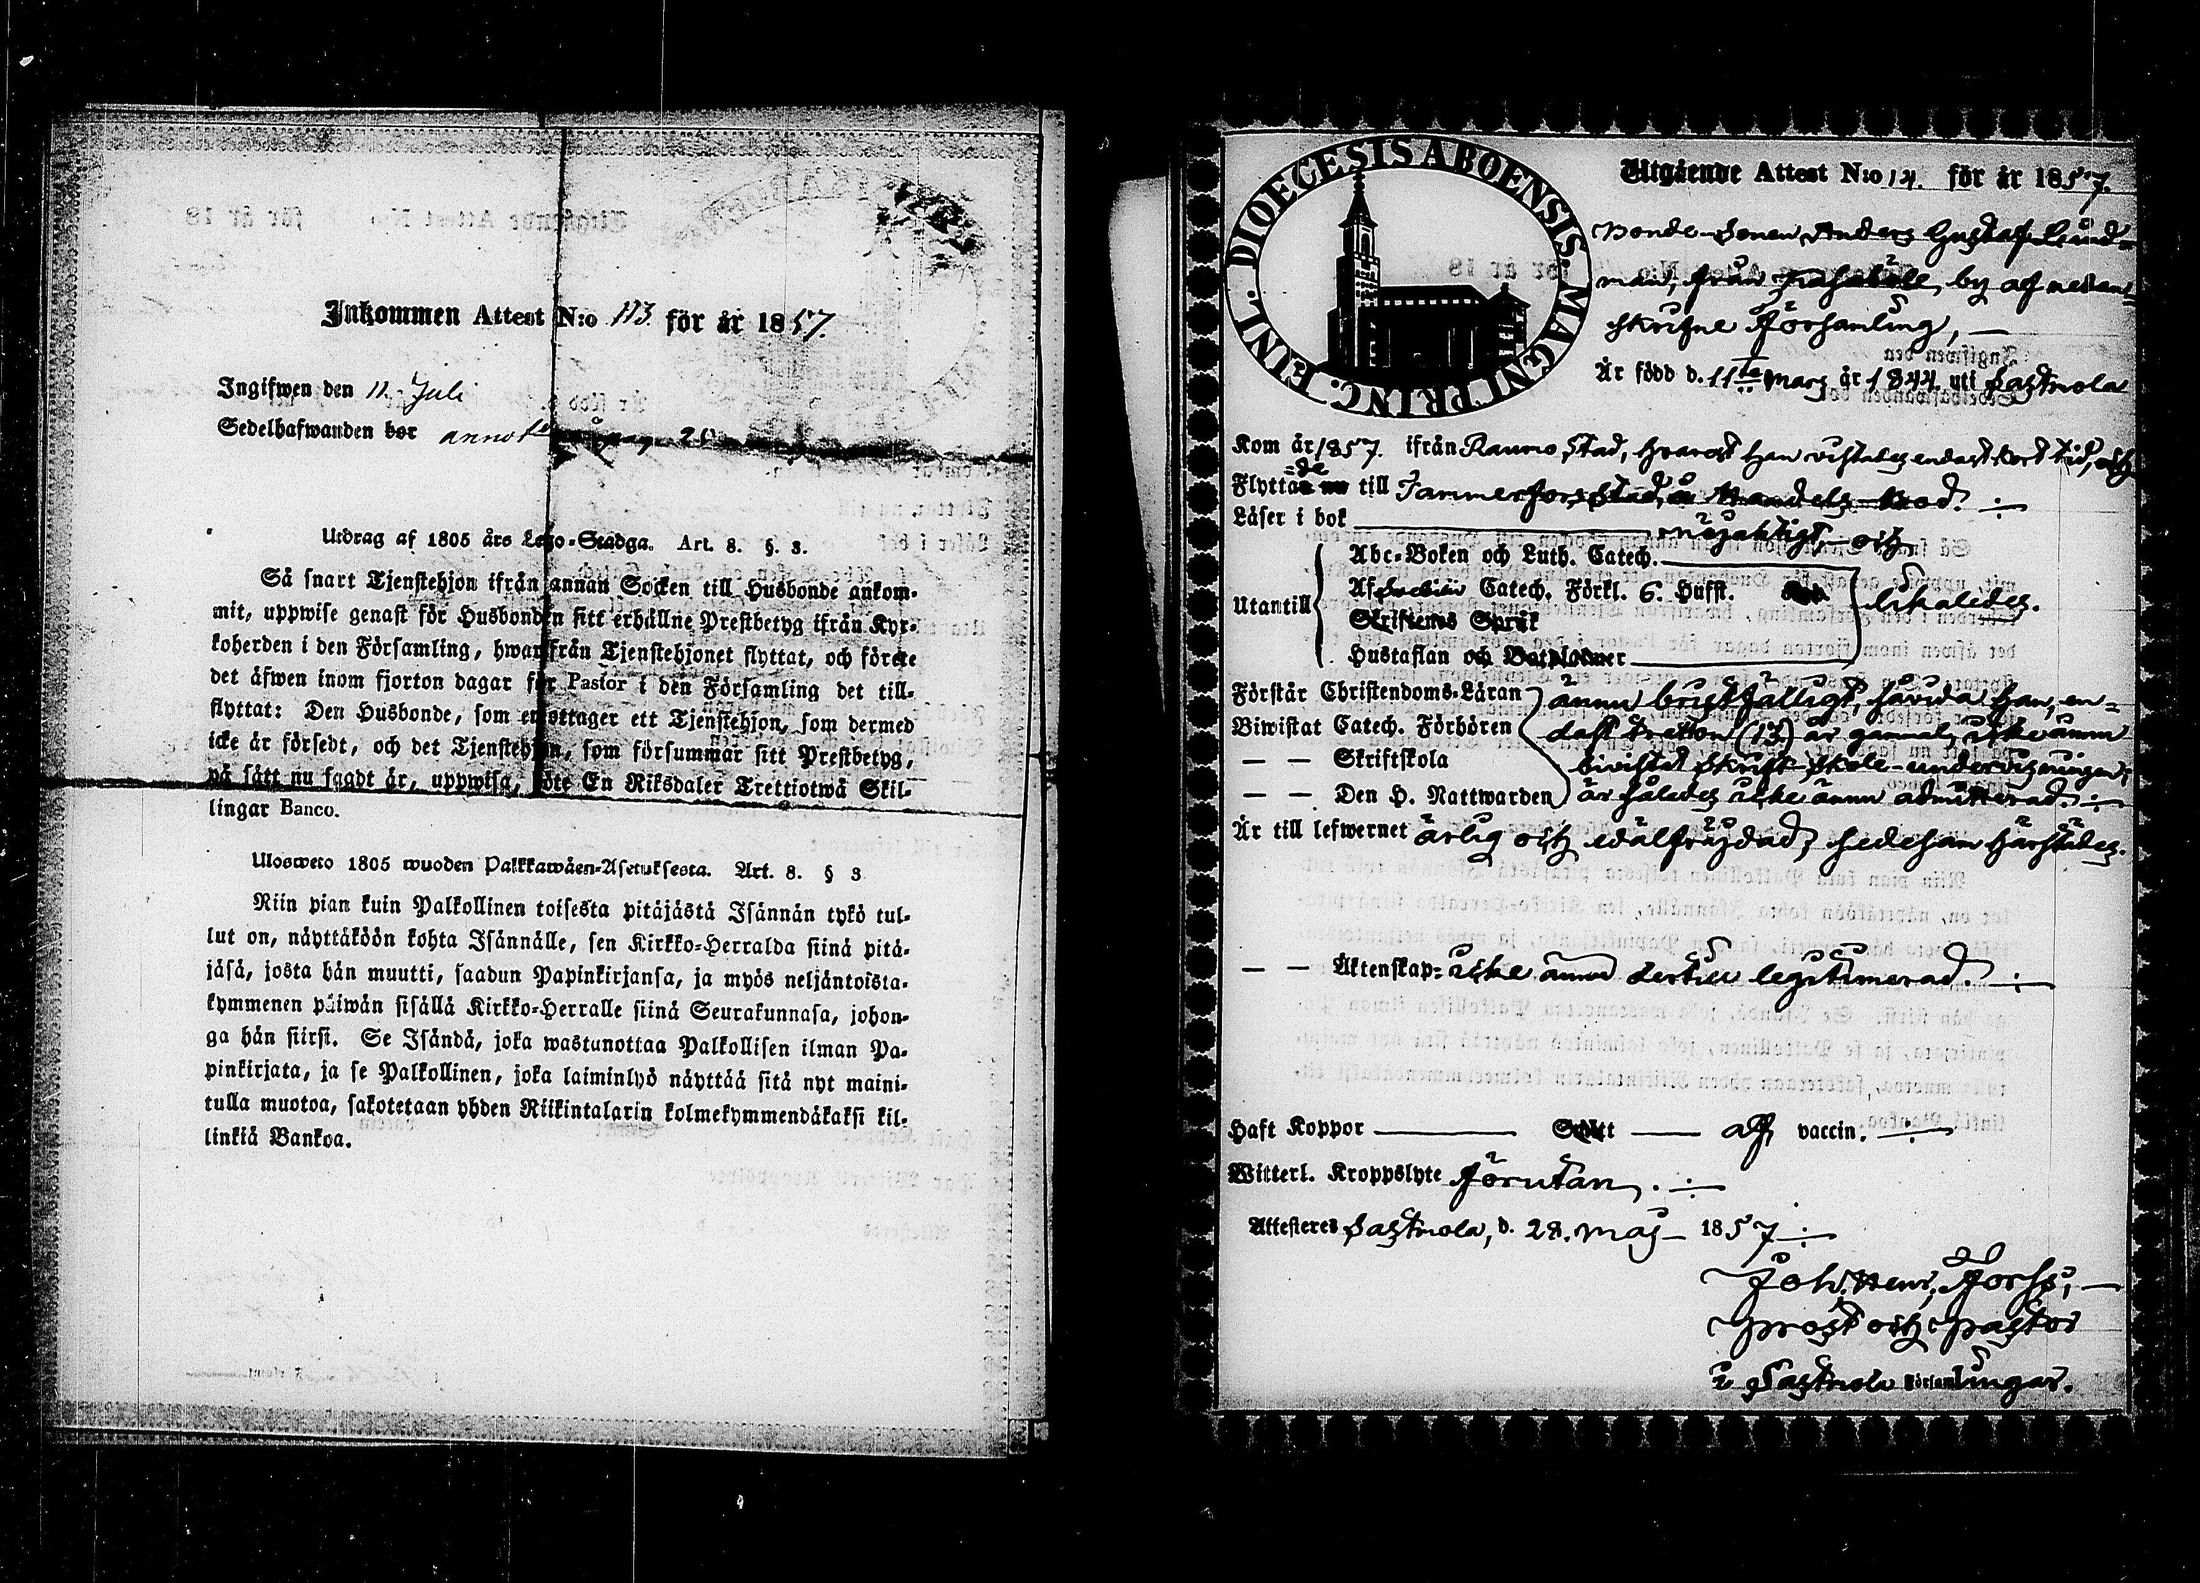 Inkommen Attest N:o 113 för år 1857.
Ingifwen den 11. Juli
Sedelhafwanden bor
Utdrag af 1805 års Lego-Stadga. Art. 8. §. 3.
Så snart Tjenstehjon ifrån annan Socken till Husbonde ankom-
mit, uppwise genast för Husbonden sitt erhållne Prestbetyg ifrån Kyr-
koherden i den Församling, hwarifrån Tjenstehjonet flyttat, och förete
det äfwen inom fjorton dagar för Pastor i den Församling det till-
flyttat: Den Husbonde, som emottager ett Tjenstehjon, som dermed
icke är försedt, och det Tjenstehjon, som försummar sitt Prestbetyg,
på sätt nu sagdt är, uppwisa, böte En Riksdaler Trettiotwå Skil-
lingar Banco.
Ulosweto 1805 wuoden Palkkawäen-Asetuksesta. Art. 8. § 3
Niin pian kuin Palkollinen toisesta pitäjästä Isännän tykö tul-
lut on, näyttäköön kohta Isännälle, sen Kirkko-Herralda siinä pitä-
jäsä, josta hän muutti, saadun Papinkirjansa, ja myös neljäntoista-
kymmenen päiwän sisällä Kirkko-Herralle siinä Seurakunnasa, johon-
ga hän siirsi. Se Isändä, joka wastunottaa Palkollisen ilman Pa-
pinkirjata, ja se Palkollinen, joka laiminlyö näyttää sitä nyt maini-
tulla muotoa, sakotetaan yhden Riikintalarin kolmekymmendäkaksi kil-
linkiä Bankoa.
DIOECESIS ABOENSIS. MAGNI PRINC. FINL.
Utgående Attest N:o 14. för år 1857.
Bonde-Sonen Anders Gustaf Lind-
man, från by af nedan-
skrifne Församling, —
Är född d. 11te Mars år 1844. uti Sastmola
Kom år 1857. ifrån Raumo Stad, hvarest han vistades endast kort tid, och
Flyttade till Tammerfors Stad, å Handels-bod.
Läser i bok nöjaktigt, och
Utantill
Abc-Boken och Luth. Catech.
Af Svebilii Catech. Förkl. 6. Hufst. likaledes.
Skriftenes Språk
Hustaflan och Botpsalmer
Förstår Christendoms-Läran ännu bristfälligt, såvida han, en-
Biwistat Catech. Förhören dast tretton (13) år gammal, icke ännu
— — Skriftskola bivistat Skrift-skole-undervisningar;
— — Den H. Nattwarden är således icke ännu admitterad.
Är till lefwernet ärlig och välfrejdad, sedesam härstädes.
— — Äktenskap: icke ännu dertill legitimerad.
Haft Koppor — Smitt — af vaccin.
Witterl. Kroppslyte förutan.
Attesteras Sastmola, d. 28. Maj 1857
Joh. Henr. Forss,
Prost och Pastor
i Sastmola Församlingar.